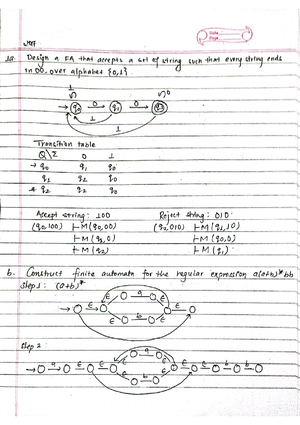 Date
Page
1a. Design a FA that accepts a set of string such that every string ends
in 00. over alphabet {0,1}.
1
0
q0 0 q1 0 q2
1
1
Transition table
Q\Σ 0 1
→ q0 q1 q0
q1 q2 q0
* q2 q2 q0
Accept string: 100 Reject string: 010
(q0,100) ⊢M(q0,00) (q0,010) ⊢M(q1,10)
⊢M(q1,0) ⊢M(q0,0)
⊢M(q2) ⊢M(q1)
b. Construct finite automata for the regular expression a(a+b)*bb
Step 1: (a+b)*
ε
ε a ε
ε ε
ε b ε
ε
Step 2:
ε
ε a ε
a ε ε ε ε b ε b
ε b ε
ε